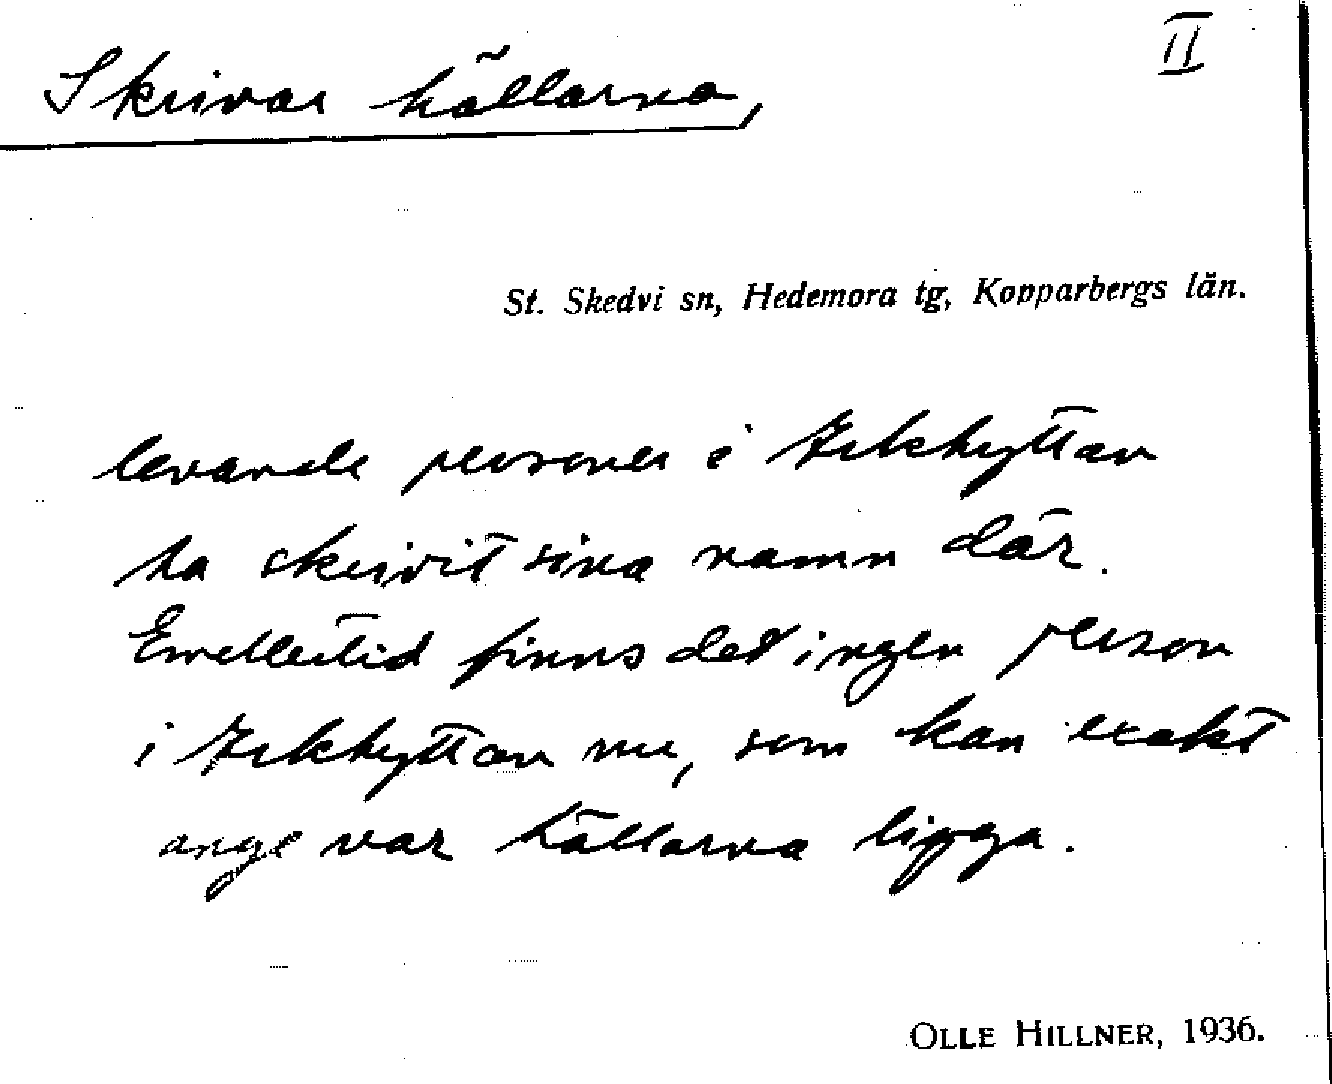 II
Skrivar hällarna,
St. Skedvi sn, Hedemora tg, Kopparbergs län.
levande personer i Arkhyttan
ha skrivit sina namn där.
Emellertid finns det ingen person
i Arkhyttan nu, som kan exakt
ange var hällarna ligga.
OLLE HILLNER, 1936.